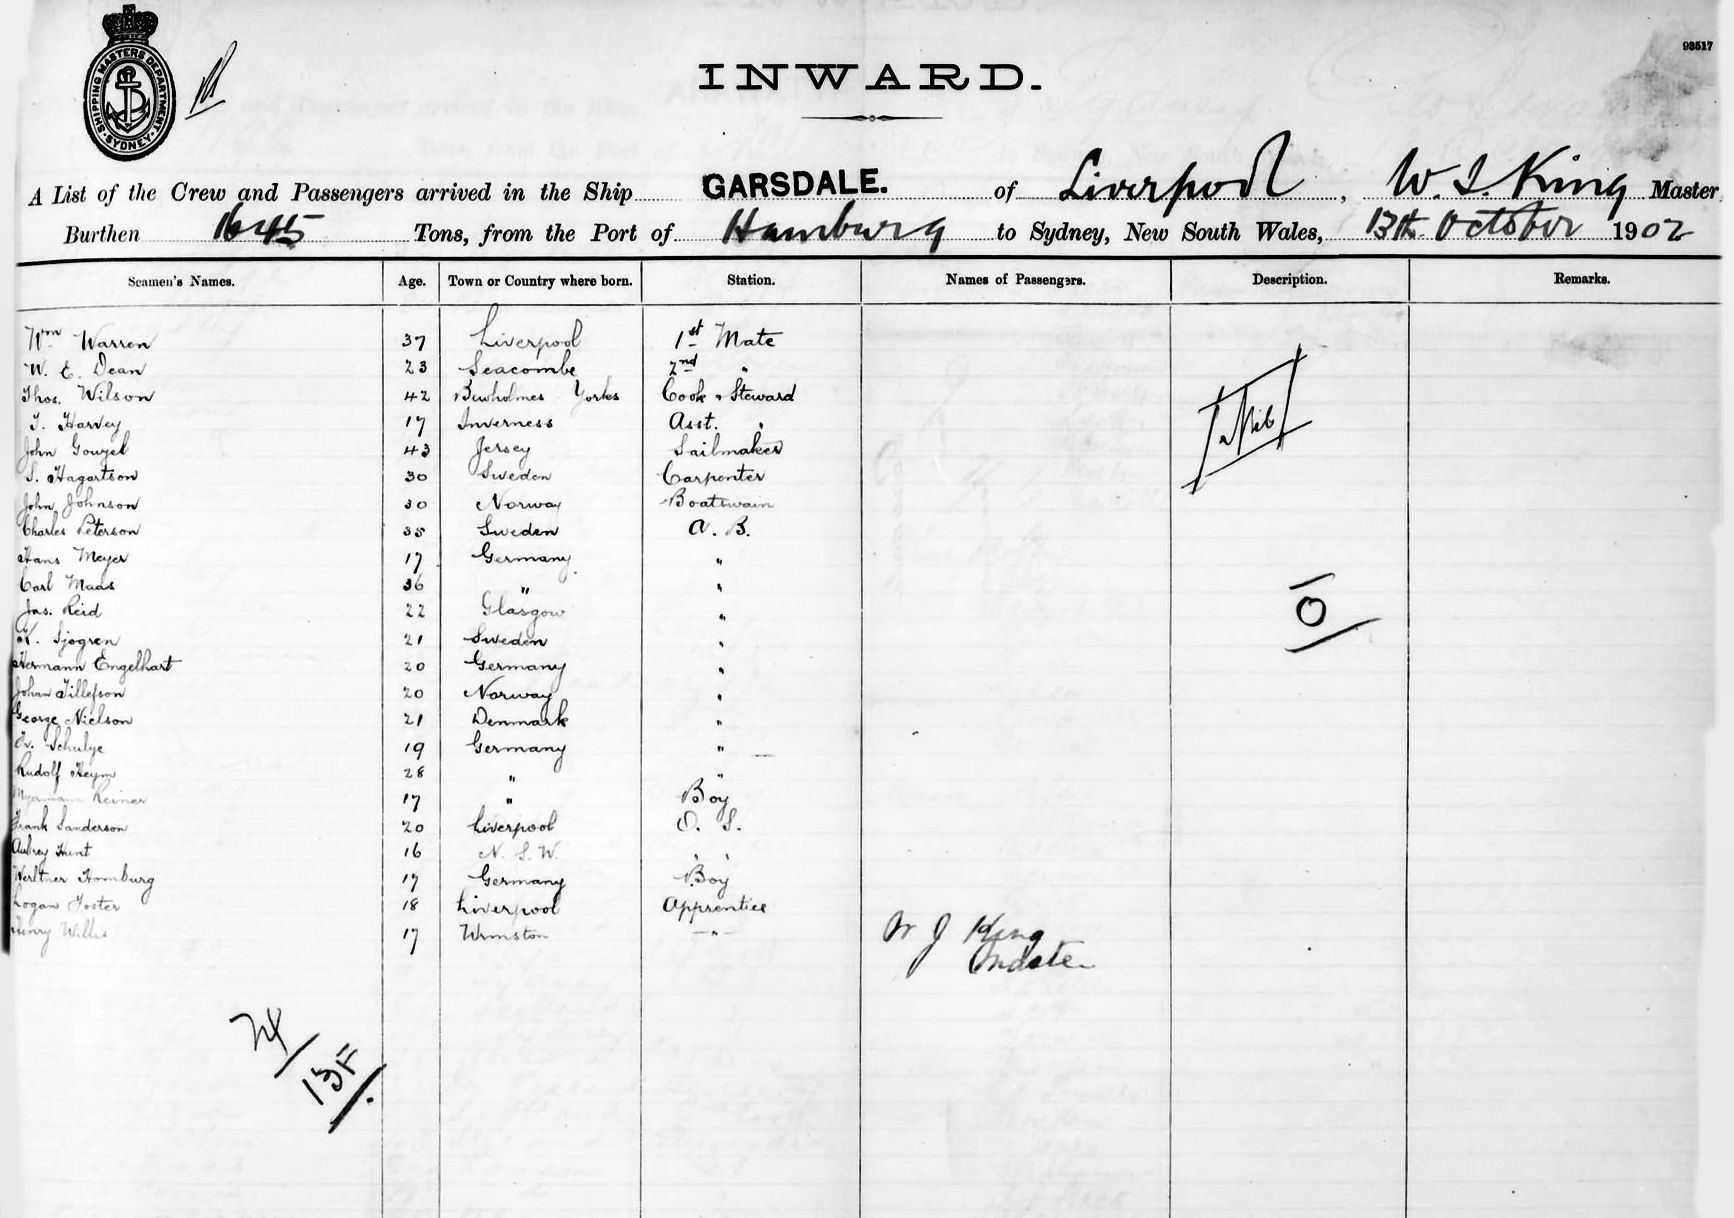 93517
SHIPPING MASTERS DEPARTMENT. SYDNEY.
INWARD.
A List of the Crew and Passengers arrived in the Ship GARSDALE. of Liverpool, W. J. King Master
Burthen 1645 Tons, from the Port of Hamburg to Sydney, New South Wales, 13th October 1902
Seamen's Names. Age. Town or Country where born. Station. Names of Passengers. Description. Remarks.
Wm Warren 37 Liverpool 1st Mate
W. E. Dean 23 Seacombe 2nd "
Thos. Wilson 42 Bewholmes Yorks Cook & Steward
T. Harvey 17 Inverness Asst. "
John Gouzel 43 Jersey Sailmaker
S. Hagartson 30 Sweden Carpenter
John Johnson 30 Norway Boatswain
Charles Peterson 35 Sweden A. B.
Hans Meyer 17 Germany "
Carl Maas 36 " "
Jas. Reid 22 Glasgow "
K. Sjogren 21 Sweden "
Hermann Engelhart 20 Germany "
Johan Tillefson 20 Norway "
George Nielson 21 Denmark "
Schulye 19 Germany "
Rudolf Heym 28 " "
Reiner 17 " Boy
Frank Sanderson 20 Liverpool O. S.
Aubrey Hunt 16 N. S. W. " "
Werltner Homburg 17 Germany Boy
Logan Foster 18 Liverpool Apprentice
Henry Willis 17 Urmston "
W J King
Master
Nil
0
24
13F.